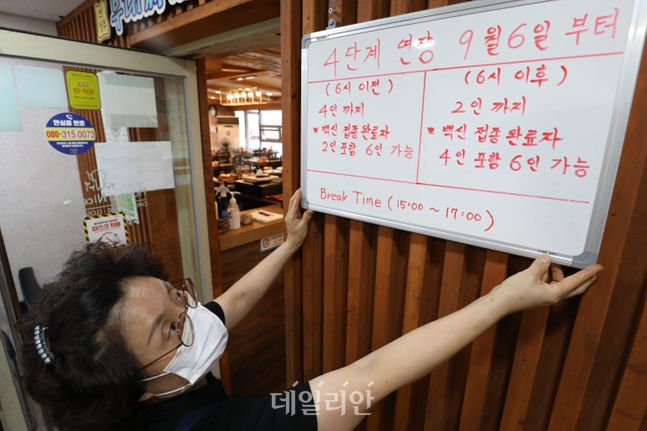 4단계 연장 9월6일 부터
(6시 이전)
4인 까지
* 백신 접종완료자
2인 포함 6인 가능
(6시 이후)
2인 까지
* 백신 접종완료자
4인 포함 6인 가능
Break Time (15:00 ~ 17:00)
안심콜 번호
080-315 0073
데일리안